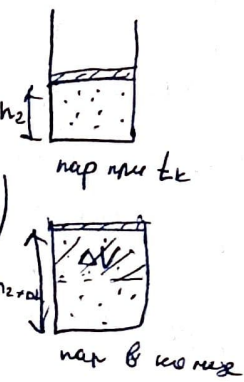 h₂
пар при tк
ΔV
h₂+Δh
пар в конце